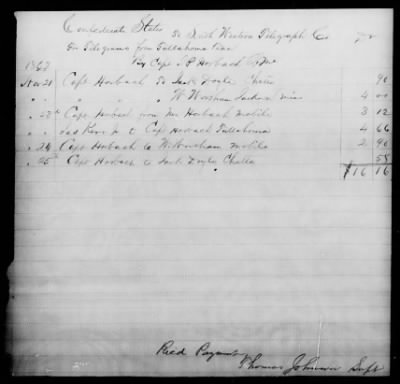 Confederate States To South Western Telegraph Co Dr
For Telegrams from Tullahoma Tenn
By Capt J P Horbach AQM
1862
Nov 21 Capt Horbach To Jack Doyle Chatta 90
" " " " W Worsham Jackson Miss 4 00
" 23 Capt Horbach from Mrs Horbach Mobile 3 12
" Jas Kerr Jr to Capt Horbach Tullahoma 4 66
" 24 Capt Horbach to Mobile 2 90
" 25 Capt Horbach to Jack Doyle Chatta 58
$16 16
Recd Payment
Thomas Johnson Supt